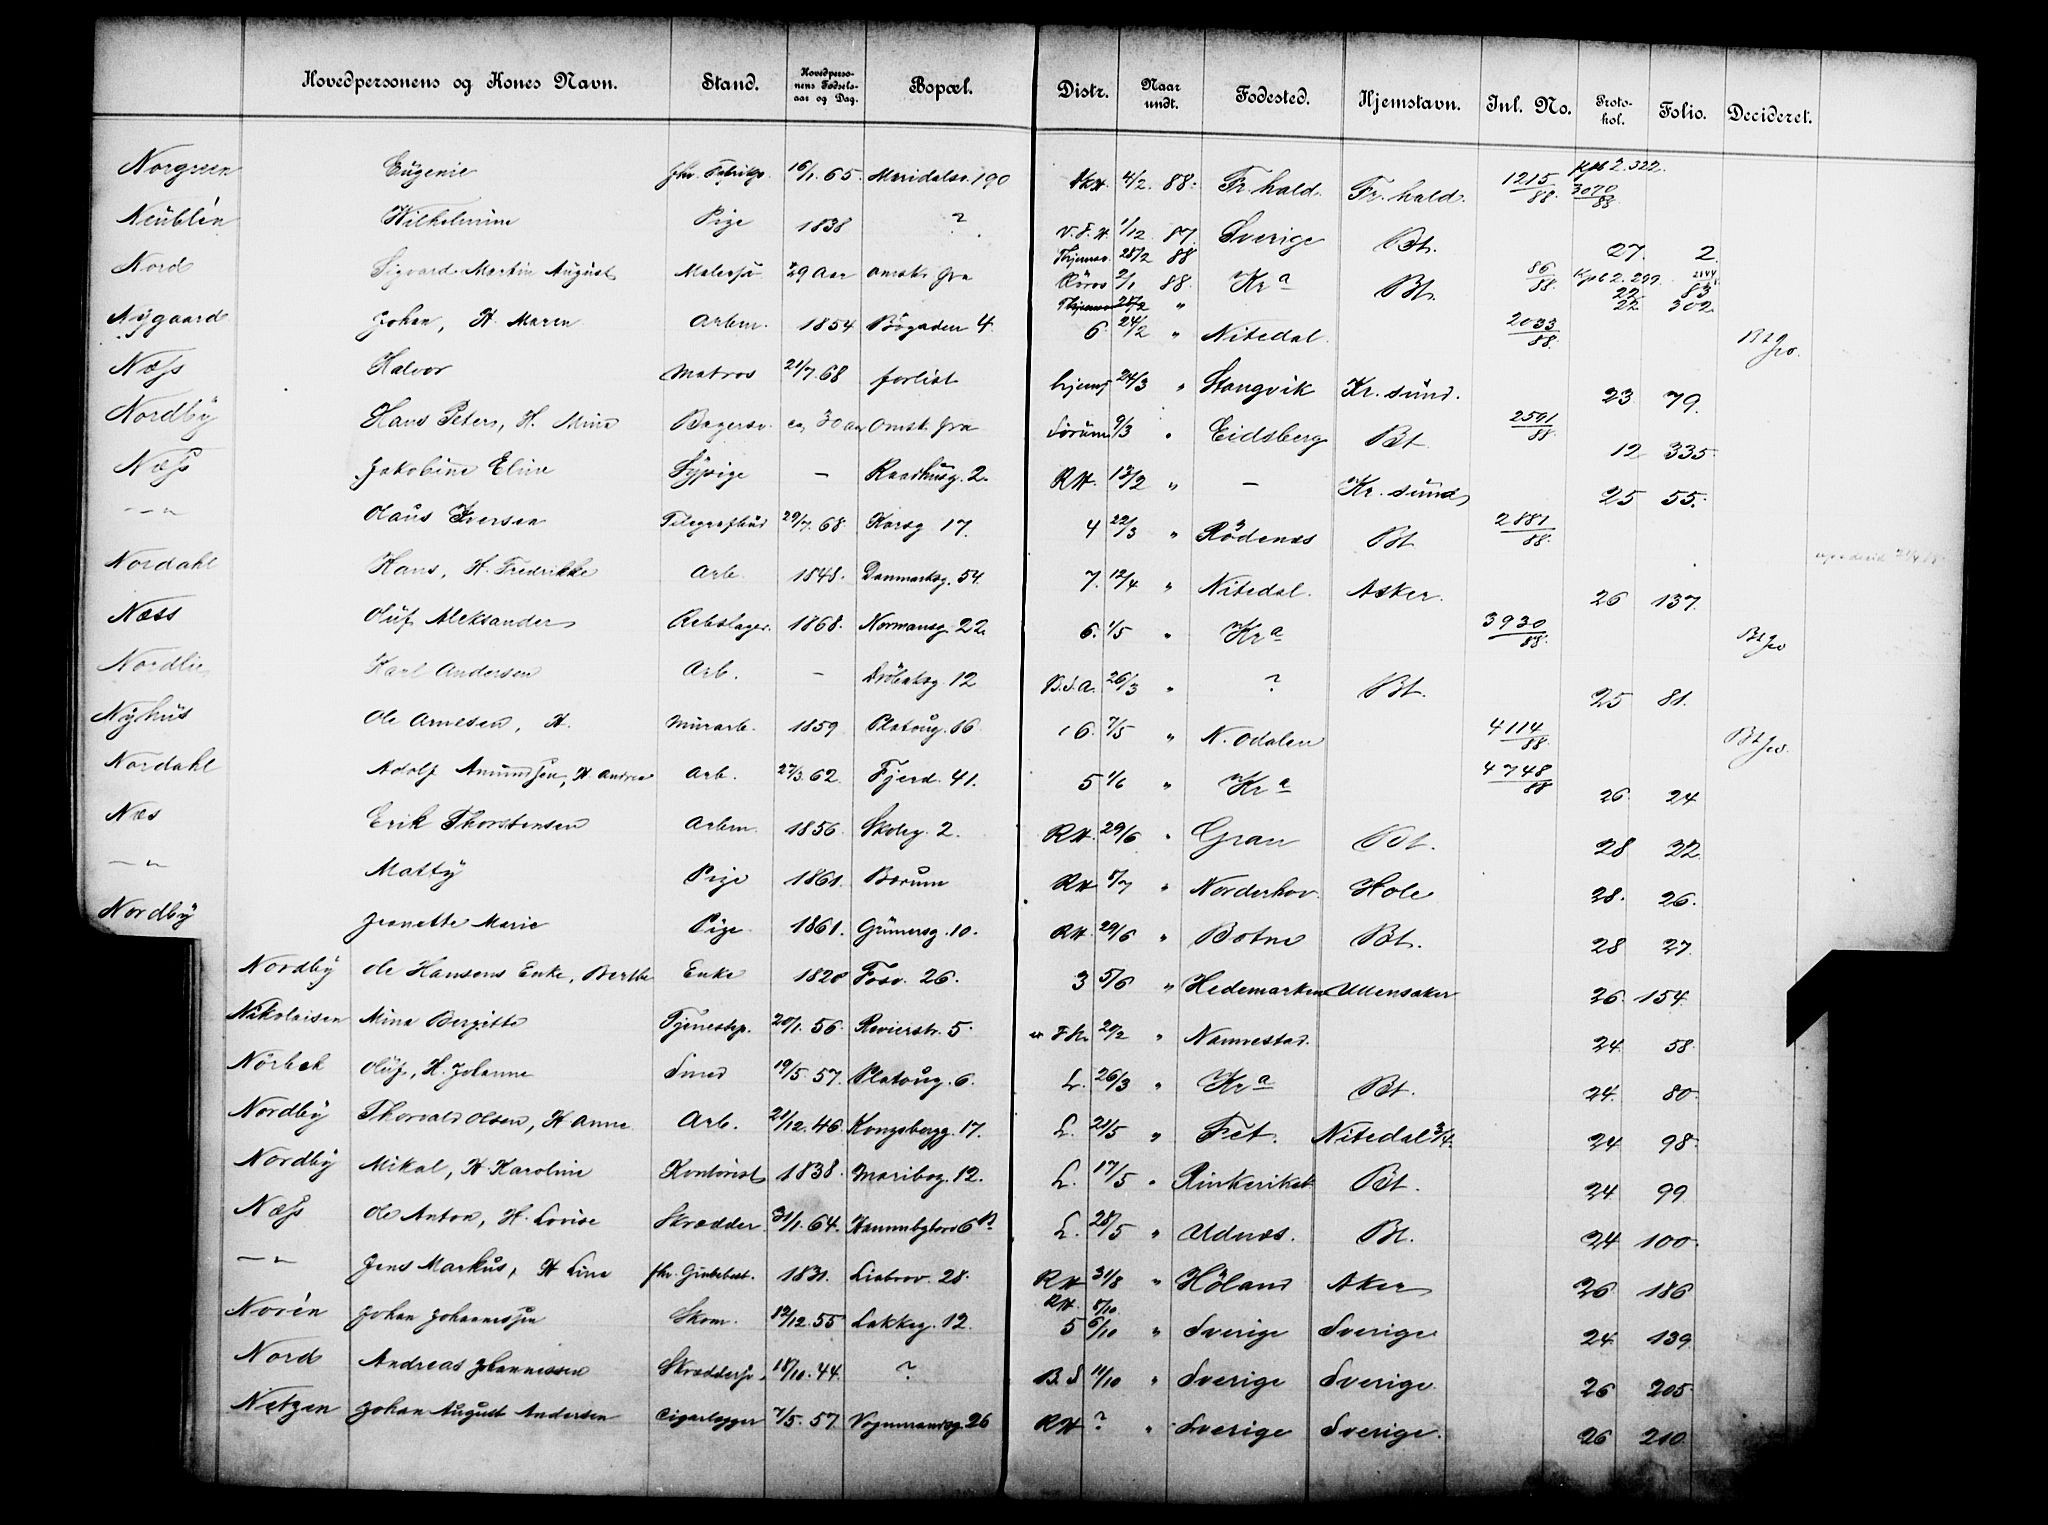 Hovedpersonens og Kones Navn. Stand. Hovedperso-nens Fødsels-aar og Dag. Bopæl. Distr. Naar undt. Fødested. Hjemstavn. Inl. No. Proto-kol. Folio. Decideret.
Norgreen Eugenie fhv. 16/1. 65. Maridalsv. 190 4/2 88. Fr. hald. Fr. hald. 1215/88. Kpb 2. 322. 3070/88
Neüblén Wilhelmine Pige 1838 ? 1/12 87. Sverige Bt. 27. 2.
Nord Sigvard Martin August Malersv 29 Aar omst. fra Røros 2/1 88. Kra Bt. 86/88. Kpb 2. 299. 22. 83 22 302
Nygaard Johan, H. Maren Arbm. 1854 Bögaden 4. 6 24/2 " Nitedal. 2033/88. Bt
Næss Halvor Matros 21/7. 68 forlist hjemf 24/3 " Stangvik Kr. sund. 23 79.
Nordby Hans Peter, H. Mina Bagersv. ca. 30 aar omst. fra Sørum 9/3 " Eidsberg Bt 2591/88. 12 335.
Næss Jakobine Eline Sypige — Raadhusg. 2. RH. 13/2 " — Kr. sund 25 55.
—"— Olaus Iversen Telegrafbud 29/7. 68. Korsg. 17. 4 22/3 " Rödenæs Bt 2881/88.
Nordahl Hans, H. Fredrikke Arb. 1848. Danmarksg. 54. 7. 12/4 " Nitedal. Asker. 26 137.
Næss Oluf Aleksander Rebslager. 1868. Normansg. 22. 6. 1/5 " Kra 3930/88. Bt
Nordlie Karl Andersen Arb. — Dröbaksg. 12 B.S.A. 26/3 " ? Bt. 25 81.
Nyhus Ole Arnesen, H. Murarb. 1859 Platoug. 16 6. 7/5 " N. Odalen 4114/88. Bt
Nordahl Adolf Amundsen, H Andrea Arb. 27/3. 62. Fjerd. 41. 5 1/6 " Kra 4748/88 26. 24
Næs Erik Thorstensen Arbm. 1856. Skoleg. 2. RH. 29/6 " Gran Bt. 28 22.
—"— Matty Pige 1861. Bærum RH 5/7 " Norderhov. Hole 28. 26.
Nordby Jeanette Marie Pige 1861. Grünersg. 10. RH. 29/6 " Botne Bt. 28 27.
Nordby Ole Hansens Enke, Berthe Enke 1828 Fosv. 26. 3 5/6 " Hedemarken Ullensaker 26. 154
Nikolaisen Mina Bergitte Tjenestep. 20/1. 56. Revierstr. 5. 20/2 " Namnestad. 24. 58.
Nörbek Oluf, H. Johanne Smed 19/5. 57. Platoug. 6. L. 26/3 " Kra Bt. 24. 80.
Nordby Thorvald Olsen, H Anne Arb. 21/12. 46. Kongsbergg. 17. L. 21/5 " Fet. Nitedal 3/4. 24 98.
Nordby Mikal, H. Karoline Kontorist 1838. Maribog. 12. L. 17/5 " Rinkeriket Bt. 24 99
Næss Ole Anton, H. Lovise Skrædder. 31/1. 64. 6 L. 28/5 " Udnæs. Bt. 24 100.
—"— Jens Markus, H Line fhv. 1831. Liabrov. 28. RH 31/8 " Höland Aker 26 186
Norén Johan Johannessen Skom. 12/12. 55 Lakkeg. 12. RH. 5/10. 5 6/10 " Sverige Sverige 24. 139
Nord Andreas Johannessen Skræddersv. 18/10. 44. ? B. S 11/10 " Sverige Sverige. 26 205
Netzen Johan August Andersen Cigarlægger 7/5. 57. Vognmandsg. 26 RH ? " Sverige Sverige. 26 210.